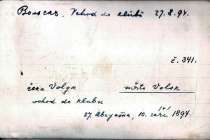 Vchod do klubu 27.8.94.
č. 341.
řeka Volga město Volsk
vchod do klubu
27. srpna, 10. září 1894